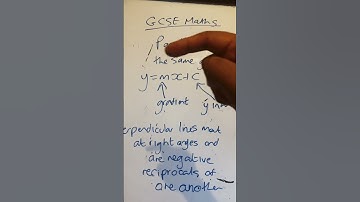 GCSE Maths
the same
y = mx + c
gradient
y in
erpendicular lines meet
at right angles and
are negative
reciprocals of
one another